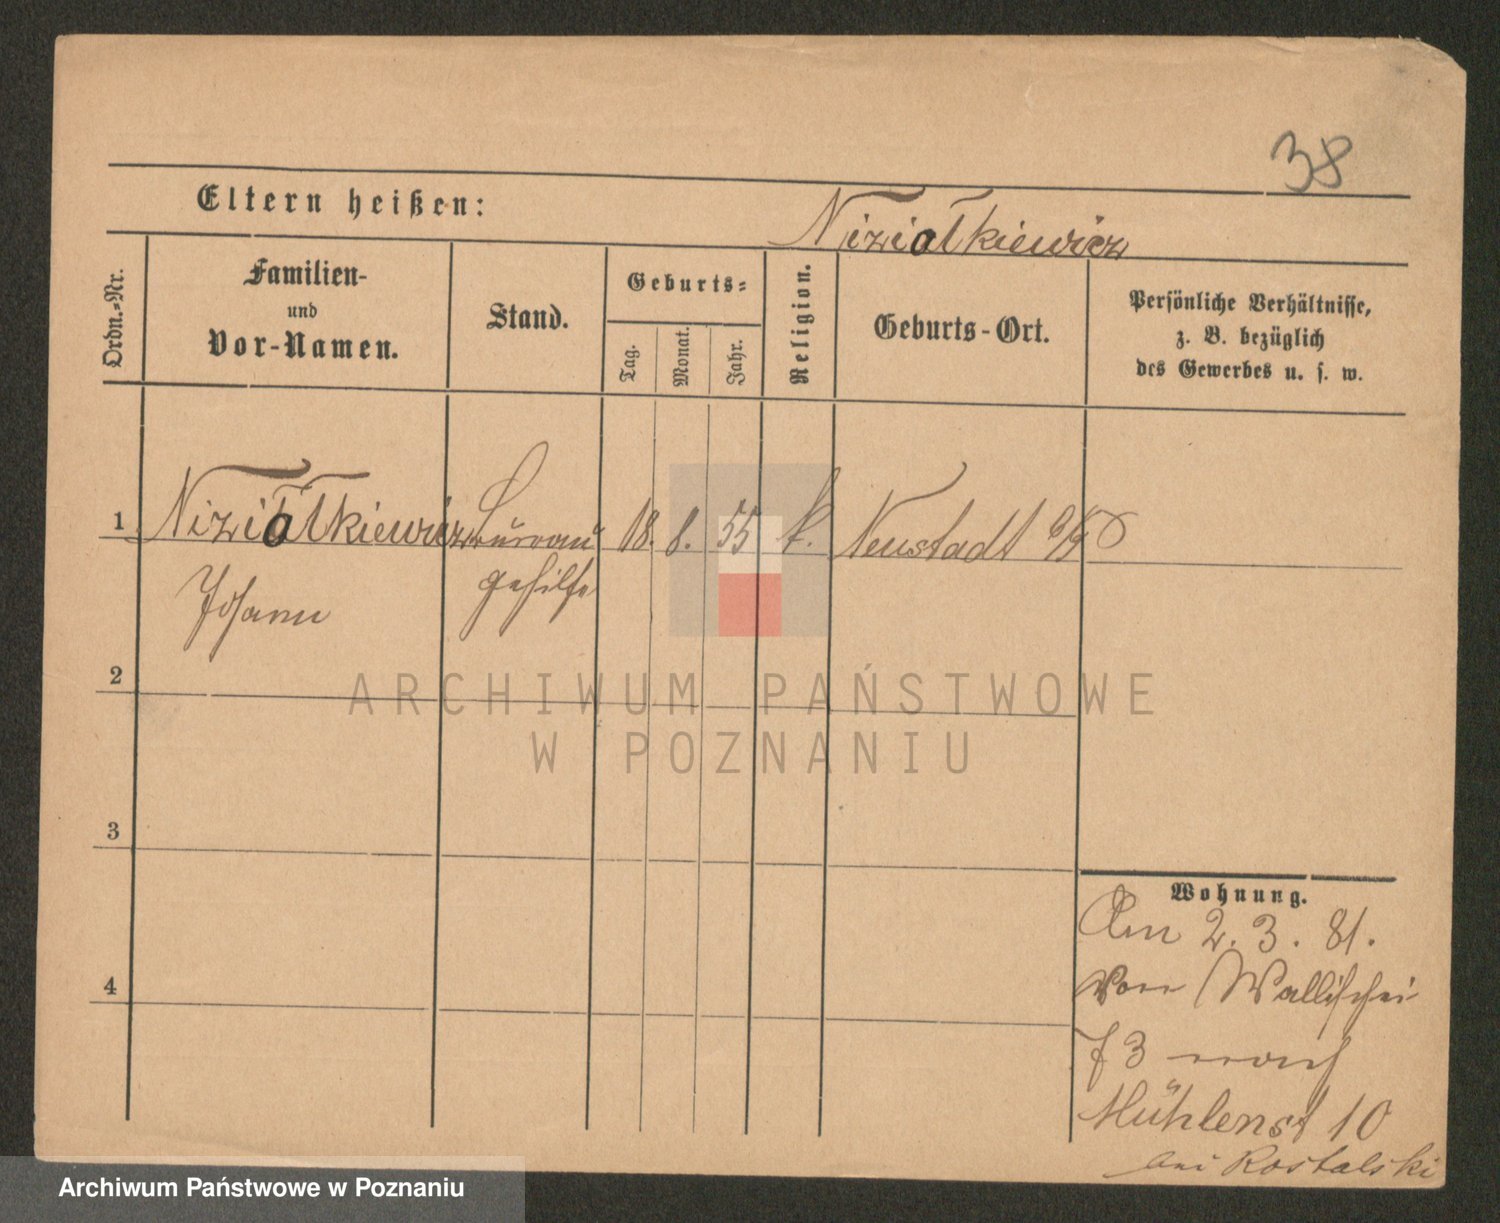 38
Eltern heißen:
Niziołkiewicz
Ordn.-Nr.
Familien-
und
Vor-Namen.
Stand.
Geburts-
Tag.
Monat.
Jahr.
Religion.
Geburts-Ort.
Persönliche Verhältnisse,
z. B. bezüglich
des Gewerbes u. s. w.
1
Niziołkiewicz
Johann
Bureau
gehilfe
18.
8.
55
k.
Neustadt
2
3
4
Wohnung.
Am 2. 3. 81.
von Wallischei
73 nach
Mühlenst 10
bei Rostalski
ARCHIWUM PAŃSTWOWE
W POZNANIU
Archiwum Państwowe w Poznaniu